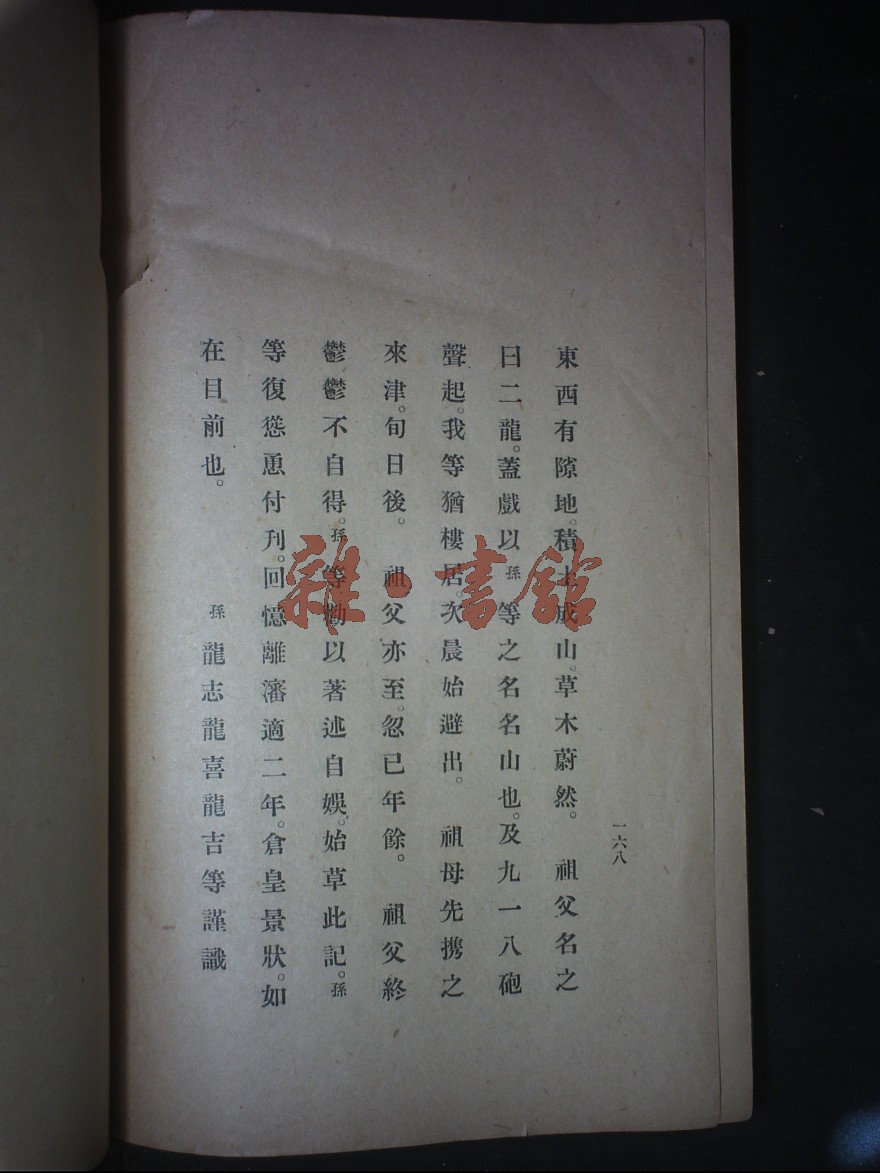 一六八
東西有隙地。積土成山。草木蔚然。　祖父名之
曰二龍。蓋戲以孫等之名名山也。及九一八砲
聲起。我等猶樓居。次晨始避出。　祖母先攜之
來津。旬日後。　祖父亦至。忽已年餘。　祖父終
鬱鬱不自得。孫等勸以著述自娛。始草此記。孫
等復慫恿付刊。回憶離瀋適二年。倉皇景狀。如
在目前也。
孫龍志龍喜龍吉等謹識
雜·書館